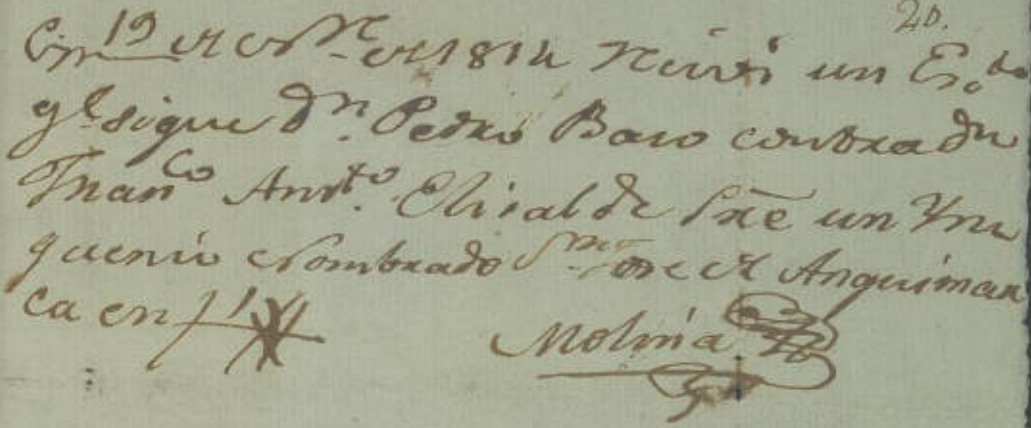 20.
En 19 de Nre. de 1814 Reciví un Exp.te
q.e sigue Dn. Pedro Baso contra Dn
Fran.co Ant.o Elisalde sre un Yn
quenio nombrado Sn. Jose de Anquiman
ca en f
Molina